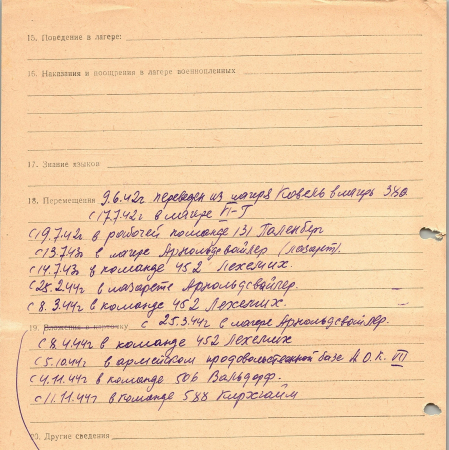 15. Поведение в лагере:
16. Наказания и поощрения в лагере военнопленных
17. Знание языков
18. Перемещения 9.6.42г переведен из лагеря Ковель в лагерь
с 17.7.42г в лагере VI-Г
с 19.7.42г в рабочей команде 131 Паленберг
с 13.7.43г в лагере Арнольдсвайлер (лазарет).
с 14.7.43г в команде 452 Лехених.
с 25.2.44г в лазарете Арнольдсвайлер.
с 8.3.44г в команде 452 Лехених.
19. Вложения в карточку с 25.3.44г в лагере Арнольдсвайлер.
с 8.4.44г в команде 452 Лехених
с 5.10.44г в армейском продовольственной базе А.О.К. VII
с 4.11.44г в команде 506 Вальдорф.
с 11.11.44г в команде 588 Кирхгайм
20. Другие сведения